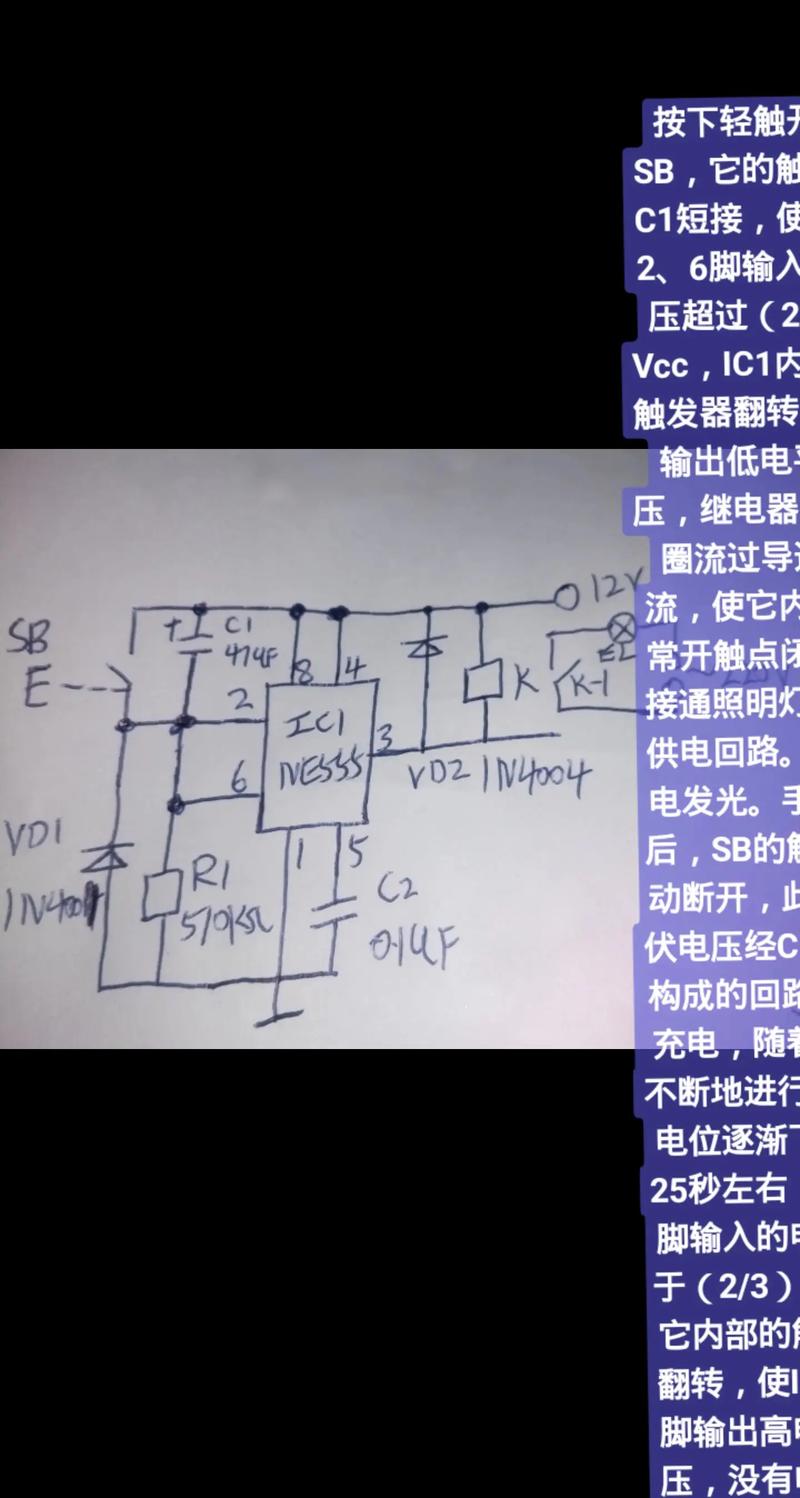 按下轻触
SB，它的触
C1短接，使
2、6脚输入
压超过（2
Vcc，IC1内
触发器翻转
输出低电平
压，继电器
圈流过导
流，使它内
常开触点闭
接通照明灯
供电回路。
电发光。手
后，SB的触
动断开，此
伏电压经C
构成的回路
充电，随着
不断地进行
电位逐渐
25秒左右
脚输入的电
于（2/3）
它内部的触
翻转，使I
脚输出高电
压，没有
12V
SB
+
C1
47uF
E
8
4
EL
K
K-1
2
IC1
NE555
3
6
VD2 1N4004
VD1
1
5
R1
C2
510KΩ
0.1uF